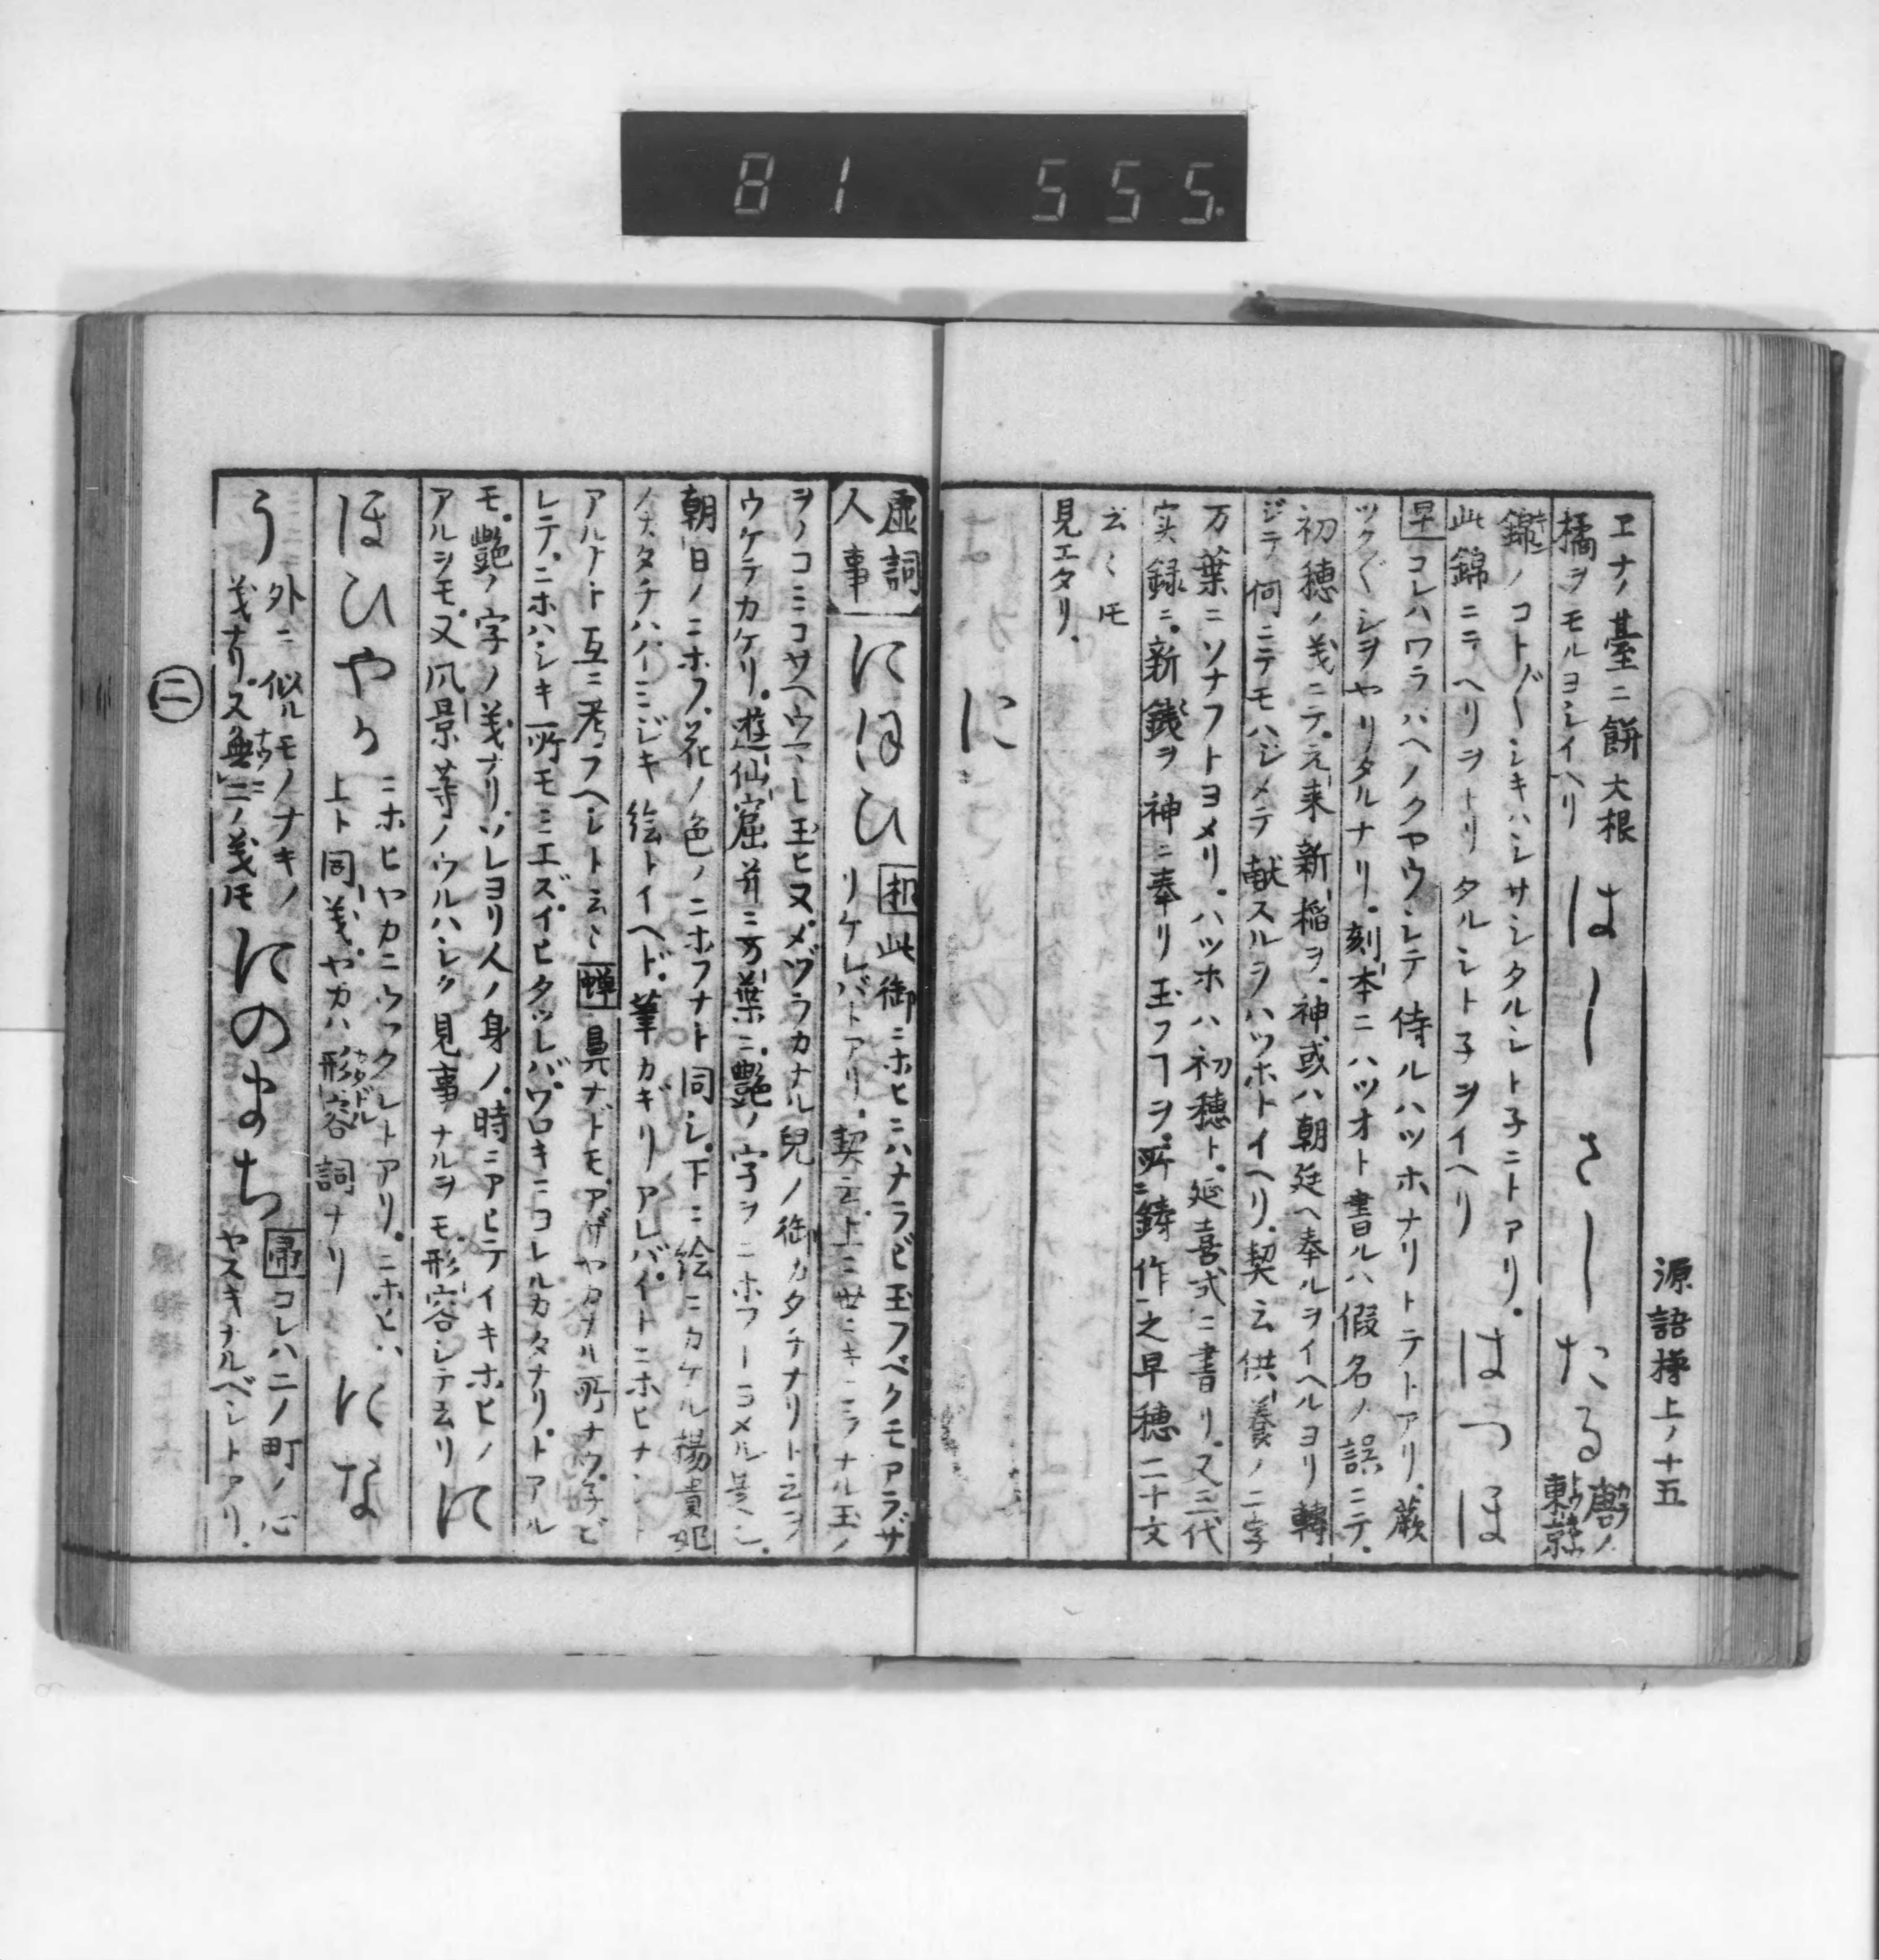 81 555
源語梯上ノ十五
ヱナノ臺ニ餅大根
橘ヲモルヨシイヘリ
はしさしたる
唐ノ
東京
錦ノコト〴〵シキハシサシタルシト子ニトアリ。
此錦ニテヘリヲトリタルシト子ヲイヘリ
はつほ
早コレハワラハヘノクヤウシテ侍ルハツホナリトテトアリ。蕨
ツク〴〵シヲヤリタルナリ。刻本ニハツオト書ルハ假名ノ誤ニテ。
初穂ノ義ニテ。元来新稲ヲ。神或ハ朝廷ヘ奉ルヲイヘルヨリ轉
ジテ何ニテモハジメテ献スルヲハツホトイヘリ。契云供養ノ二字
万葉ニソナフトヨメリ。ハツホハ初穂ト。延喜式ニ書リ。又三代
実録ニ。新銭ヲ神ニ奉リ玉フヿヲ。所ニ鋳作之早穂二十文
云〻𪜈
見エタリ。
に
虚詞
人事
にほひ
此御ニホヒニハナラビ玉フベクモアラザ
リケレバトアリ。契云。上ニ世ニキヨラナル玉ノ
ヲノコミコサヘウマレ玉ヒヌ。メヅラカナル兒ノ御カタチナリト云ヲ
ウケテカケリ。遊仙窟并ニ万葉ニ。艶ノ字ヲニホフトヨメル是ヘシ。
朝日ノニホフ。花ノ色ノニホフナト同シ。下ニ絵ニカケル楊貴妃
ノカタチハ。イミジキ絵トイヘド。筆カギリアレバ。イトニホヒナシト
アルナト互ニ考フヘシト云〻
蝉鼻ナドモ。アザヤカナル所ナウ。子ビ
レテ。ニホハシキ所モミエズ。イヒタツレバ。ワロキニヨレルカタナリ。トアル
モ。艶ノ字ノ義ナリ。ソレヨリ人ノ身ノ。時ニアヒテイキホヒノ
アルヲモ。又風景等ノウルハシク見事ナルヲモ。形容シテ云リ
に
ほひやか
ニホヒヤカニウツクシトアリ。ニホヒハ
上ト同義。ヤカハ形容詞ナリ
になう
外ニ似ルモノナキノ
義ナリ。又無二ノ義𪜈
にのまち
帚コレハ二ノ町ノ心
ヤスキナルベシトアリ。
二